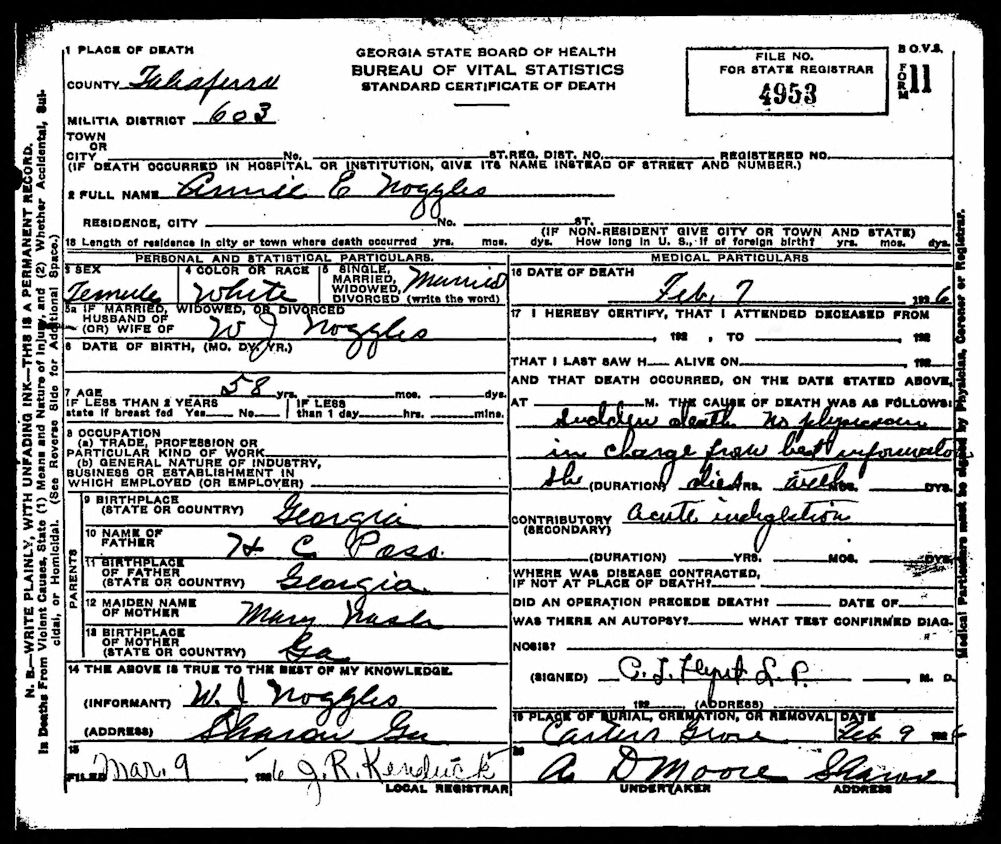 1 PLACE OF DEATH
COUNTY Taliaferro
MILITIA DISTRICT 603
TOWN
OR
CITY No. ST. REG. DIST. NO. REGISTERED NO.
(IF DEATH OCCURRED IN HOSPITAL OR INSTITUTION, GIVE ITS NAME INSTEAD OF STREET AND NUMBER.)
GEORGIA STATE BOARD OF HEALTH
BUREAU OF VITAL STATISTICS
STANDARD CERTIFICATE OF DEATH
FILE NO.
FOR STATE REGISTRAR
4953
B O.V.S.
FORM 11
2 FULL NAME Annie E Noggles
RESIDENCE, CITY No. ST.
(IF NON-RESIDENT GIVE CITY OR TOWN AND STATE)
18 Length of residence in city or town where death occurred yrs. mos. dys. How long in U. S., if of foreign birth? yrs. mos. dys.
PERSONAL AND STATISTICAL PARTICULARS.
3 SEX
Female
4 COLOR OR RACE
White
5 SINGLE,
MARRIED,
WIDOWED,
DIVORCED (write the word)
Married
5a IF MARRIED, WIDOWED, OR DIVORCED
HUSBAND OF
(OR) WIFE OF W J Noggles
6 DATE OF BIRTH, (MO. DY. YR.)
7 AGE 58 yrs. mos. dys.
IF LESS THAN 2 YEARS
state if breast fed Yes No
IF LESS
than 1 day hrs. mins.
8 OCCUPATION
(a) TRADE, PROFESSION OR
PARTICULAR KIND OF WORK
(b) GENERAL NATURE OF INDUSTRY,
BUSINESS OR ESTABLISHMENT IN
WHICH EMPLOYED (OR EMPLOYER)
PARENTS
9 BIRTHPLACE
(STATE OR COUNTRY) Georgia
10 NAME OF
FATHER H C Pass
11 BIRTHPLACE
OF FATHER
(STATE OR COUNTRY) Georgia
12 MAIDEN NAME
OF MOTHER Mary Nash
13 BIRTHPLACE
OF MOTHER
(STATE OR COUNTRY) Ga
14 THE ABOVE IS TRUE TO THE BEST OF MY KNOWLEDGE.
(INFORMANT) W. J Noggles
(ADDRESS) Sharon Ga
15
FILED Mar. 9 1926 J. R. Kendrick
LOCAL REGISTRAR
MEDICAL PARTICULARS
16 DATE OF DEATH
Feb, 7 1926
17 I HEREBY CERTIFY, THAT I ATTENDED DECEASED FROM
, 192 , TO , 192
THAT I LAST SAW H ALIVE ON 192
AND THAT DEATH OCCURRED, ON THE DATE STATED ABOVE,
AT M. THE CAUSE OF DEATH WAS AS FOLLOWS:
Sudden death no physician
in charge from best
she (DURATION) died YRS. MOS. DYS.
CONTRIBUTORY acute indigestion
(SECONDARY)
(DURATION) YRS. MOS. DYS.
WHERE WAS DISEASE CONTRACTED,
IF NOT AT PLACE OF DEATH?
DID AN OPERATION PRECEDE DEATH? DATE OF
WAS THERE AN AUTOPSY? WHAT TEST CONFIRMED DIAG-
NOSIS?
(SIGNED) C. J. Flynt L. R. M. D.
192 (ADDRESS)
19 PLACE OF BURIAL, CREMATION, OR REMOVAL DATE
Carters Grove Feb 9 1926
20
A D Moore Sharon
UNDERTAKER ADDRESS
N. B.—WRITE PLAINLY, WITH UNFADING INK—THIS IS A PERMANENT RECORD.
In Deaths From Violent Causes, State (1) Means and Nature of Injury, and (2) Whether Accidental, Sui-
cidal, or Homicidal. (See Reverse Side for Additional Space.)
Medical Particulars must be signed by Physician, Coroner or Registrar.